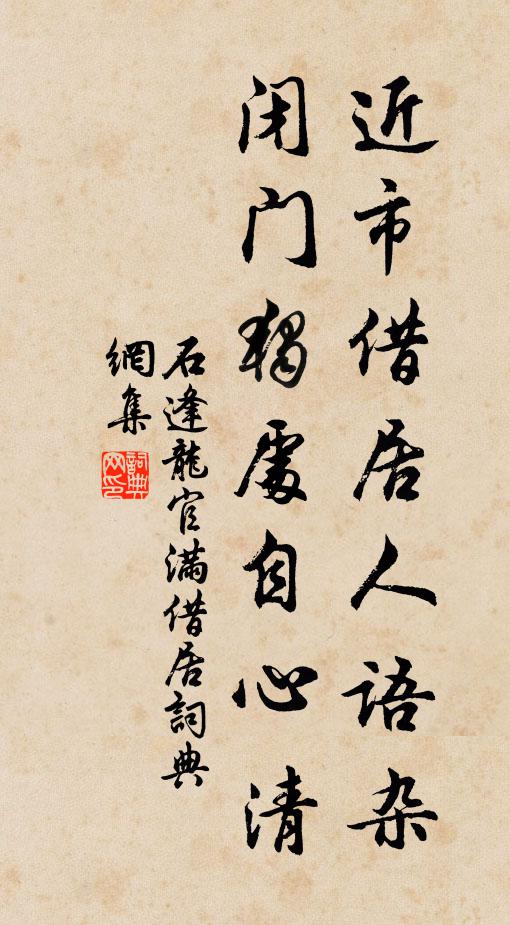 近市借居人语杂
闭门独處自心清
石逢龍官滿借居詞典
網集
詞典網印